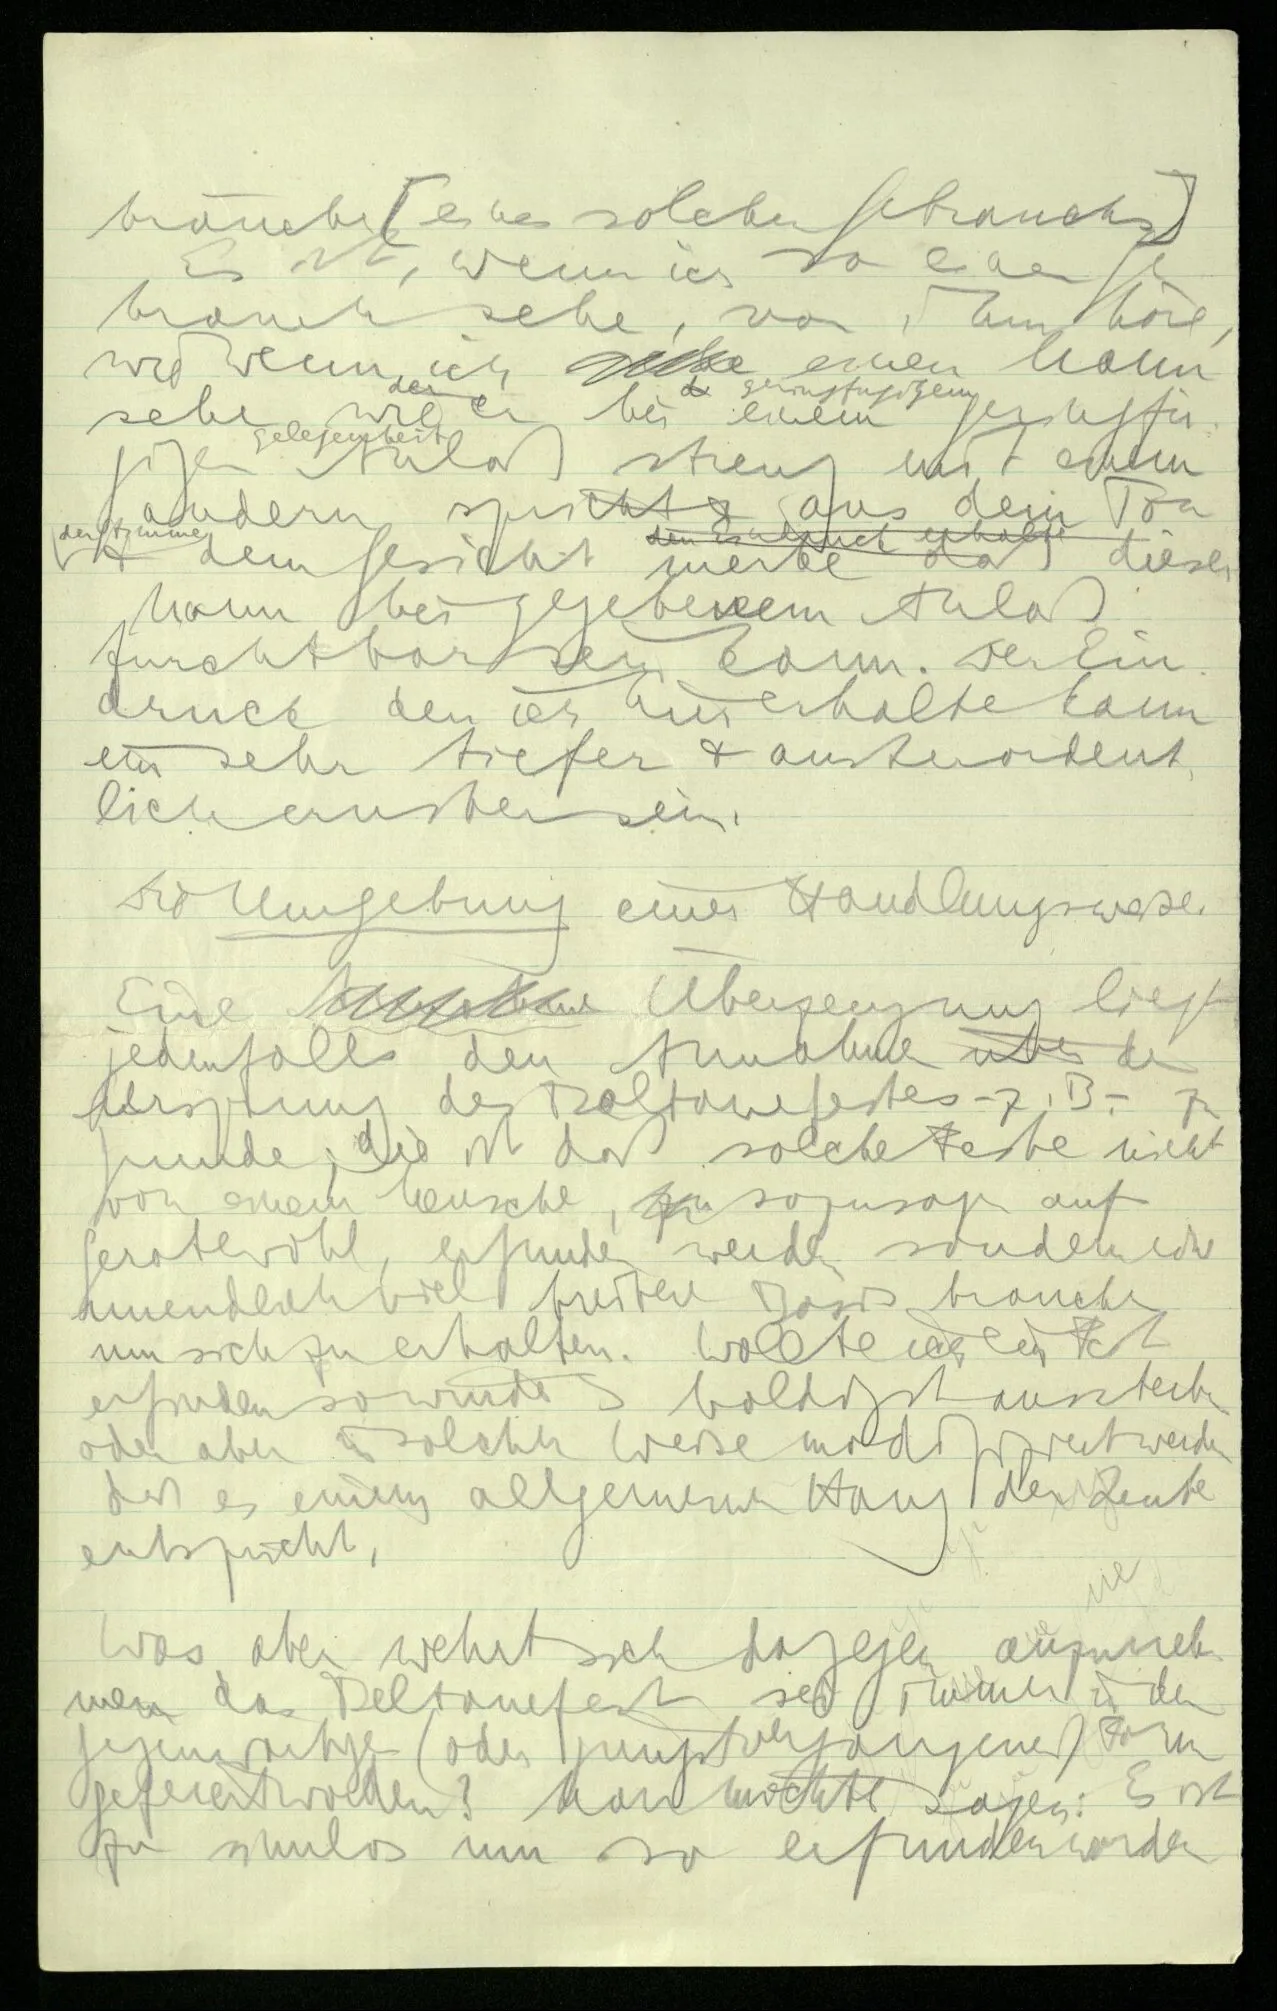 bräuche [eines solchen Gebrauchs]
Es ist, wenn ich so einen Ge
brauch sehe, von ihm höre,
wie wenn ich einen Mann
sehe wie er bei einem geringfü
der geringfügigem
gigen Anlaß streng mit einem
gelegenheit
andern spricht & aus dem Ton
der Stimme den Eindruck erhalte
& dem Gesicht merke daß dieser
Mann bei gegebenem Anlaß
furchtbar sein kann. Der Ein
druck den ich hier erhalte kann
ein sehr tiefer & außerordent
lich ernster sein.
Die Umgebung einer Handlungsweise.
Eine Überzeugung liegt
jedenfalls den Annahmen über den
Ursprung des Beltanefestes – z.B. – zu
grunde; die ist daß solche Feste nicht
von einem Menschen, sozusagen auf
Geratewohl, erfunden werden sondern eine
unendlich viel breitere Basis brauchen
um sich zu erhalten. Wollte ich ein Fest
erfinden so würde es baldigst aussterben
oder aber in solcher Weise modifiziert werden
daß es einem allgemeinen Hang der Leute
entspricht.
Was aber wehrt sich dagegen anzuneh
men das Beltanefest sei immer in der
gegenwärtigen (oder jüngstvergangenen) Form
gefeiert worden? Man möchte sagen: Es ist
zu sinnlos um so erfunden worden